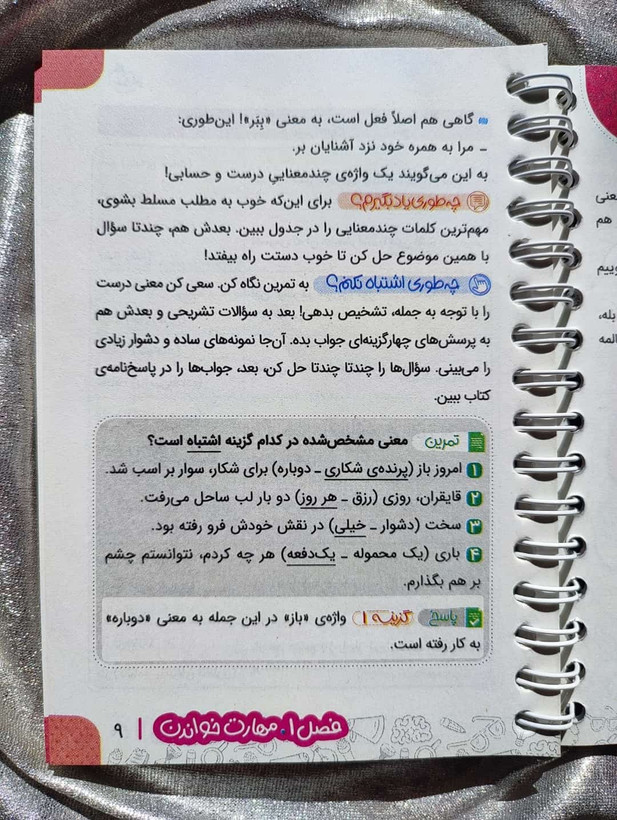 گاهی هم اصلاً فعل است، به معنی «بِبَر»! این‌طوری:
- مرا به همره خود نزد آشنایان بر.
به این می‌گویند یک واژه‌ی چندمعناییِ درست و حسابی!
چه‌طوری یاد بگیرم؟ برای این‌که خوب به مطلب مسلط بشوی،
مهم‌ترین کلمات چندمعنایی را در جدول ببین. بعدش هم، چندتا سؤال
با همین موضوع حل کن تا خوب دستت راه بیفتد!
چه‌طوری اشتباه نکنم؟ به تمرین نگاه کن. سعی کن معنی درست
را با توجه به جمله، تشخیص بدهی! بعد به سؤالات تشریحی و بعدش هم
به پرسش‌های چهارگزینه‌ای جواب بده. آن‌جا نمونه‌های ساده و دشوار زیادی
را می‌بینی. سؤال‌ها را چندتا چندتا حل کن، بعد، جواب‌ها را در پاسخ‌نامه‌ی
کتاب ببین.
تمرین معنی مشخص‌شده در کدام گزینه اشتباه است؟
۱ امروز باز (پرنده‌ی شکاری - دوباره) برای شکار، سوار بر اسب شد.
۲ قایقران، روزی (رزق - هر روز) دو بار لب ساحل می‌رفت.
۳ سخت (دشوار - خیلی) در نقش خودش فرو رفته بود.
۴ باری (یک محموله - یک‌دفعه) هر چه کردم، نتوانستم چشم
بر هم بگذارم.
پاسخ گزینه ۱ واژه‌ی «باز» در این جمله به معنی «دوباره»
به کار رفته است.
فصل ۱. مهارت خواندن | ۹
عنی
هم
وییم
بله،
المه